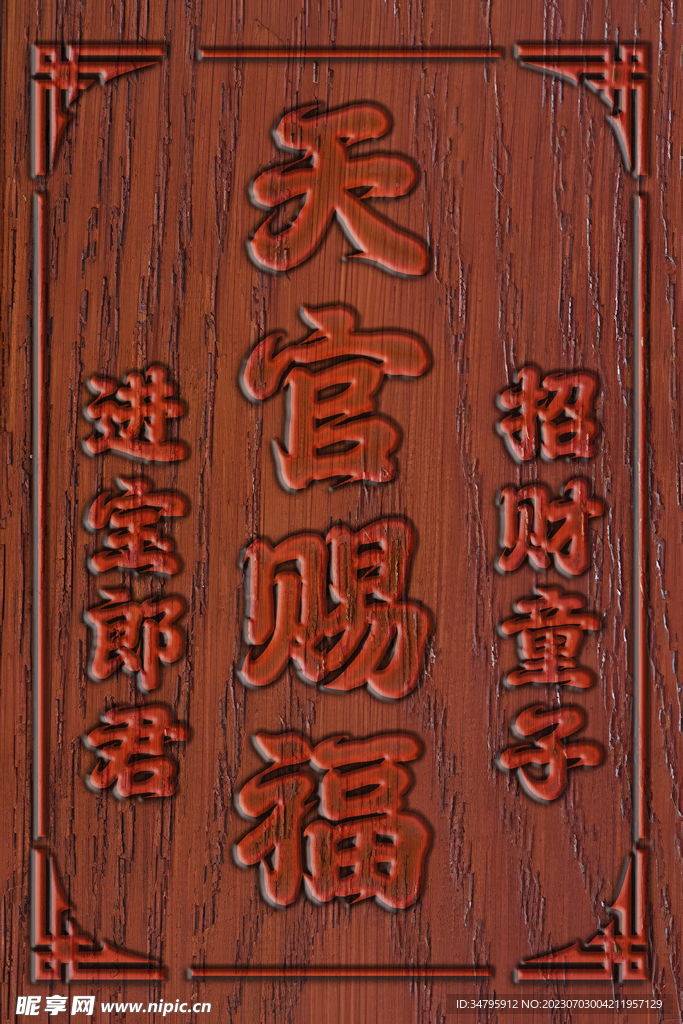 天官赐福
招财童子
进宝郎君
昵享网 www.nipic.cn
ID:34795912 NO:20230703004211957129